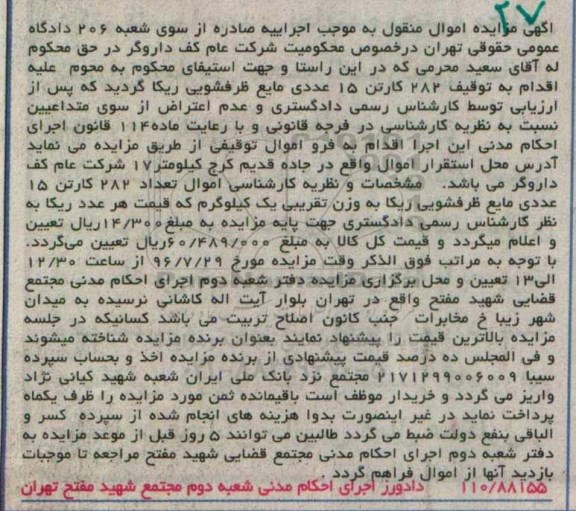 ۲۷
اگهی مزایده اموال منقول به موجب اجراییه صادره از سوی شعبه ۲۰۶ دادگاه
عمومی حقوقی تهران درخصوص محکومیت شرکت عام کف داروگر در حق محکوم
له آقای سعید محرمی که در این راستا و جهت استیفای محکوم به محوم علیه
اقدام به توقیف ۲۸۲ کارتن ۱۵ عددی مایع ظرفشویی ریکا گردید که پس از
ارزیابی توسط کارشناس رسمی دادگستری و عدم اعتراض از سوی متداعیین
نسبت به نظریه کارشناسی در فرجه قانونی و با رعایت ماده۱۱۴ قانون اجرای
احکام مدنی این اجرا اقدام به فرو اموال توقیفی از طریق مزایده می نماید
آدرس محل استقرار اموال واقع در جاده قدیم کرج کیلومتر۱۷ شرکت عام کف
داروگر می باشد. مشخصات و نظریه کارشناسی اموال تعداد ۲۸۲ کارتن ۱۵
عددی مایع ظرفشویی ریکا به وزن تقریبی یک کیلوگرم که قیمت هر عدد ریکا به
نظر کارشناس رسمی دادگستری جهت پایه مزایده به مبلغ۱۴/۳۰۰ریال تعیین
و اعلام میگردد و قیمت کل کالا به مبلغ ۶۰/۴۸۹/۰۰۰ریال تعیین می‌گردد.
با توجه به مراتب فوق الذکر وقت مزایده مورخ ۹۶/۷/۲۹ از ساعت ۱۲/۳۰
الی۱۳ تعیین و محل برگزاری مزایده دفتر شعبه دوم اجرای احکام مدنی مجتمع
قضایی شهید مفتح واقع در تهران بلوار آیت اله کاشانی نرسیده به میدان
شهر زیبا خ مخابرات جنب کانون اصلاح تربیت می باشد کسانیکه در جلسه
مزایده بالاترین قیمت را پیشنهاد نمایند بعنوان برنده مزایده شناخته میشوند
و فی المجلس ده درصد قیمت پیشنهادی از برنده مزایده اخذ و بحساب سپرده
سیبا ۲۱۷۱۲۹۹۰۰۶۰۰۹ مجتمع نزد بانک ملی ایران شعبه شهید کیانی نژاد
واریز می گردد و خریدار موظف است باقیمانده ثمن مورد مزایده را ظرف یکماه
پرداخت نماید در غیر اینصورت بدوا هزینه های انجام شده از سپرده کسر و
الباقی بنفع دولت ضبط می گردد طالبین می توانند ۵ روز قبل از موعد مزایده به
دفتر شعبه دوم اجرای احکام مدنی مجتمع قضایی شهید مفتح مراجعه تا موجبات
بازدید آنها از اموال فراهم گردد .
۱۱۰/۸۸۱۵۵ دادورز اجرای احکام مدنی شعبه دوم مجتمع شهید مفتح تهران